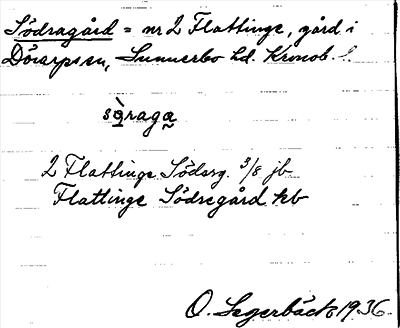 Södragård = nr 2 Flattinge, gård i
Dörarps sn, Sunnerbo hd. Kronob. l.
sö̀raga
2 Flattinge Södrg. 3/8 jb
Flattinge Södregård kb
O. Segerbäck 1936.